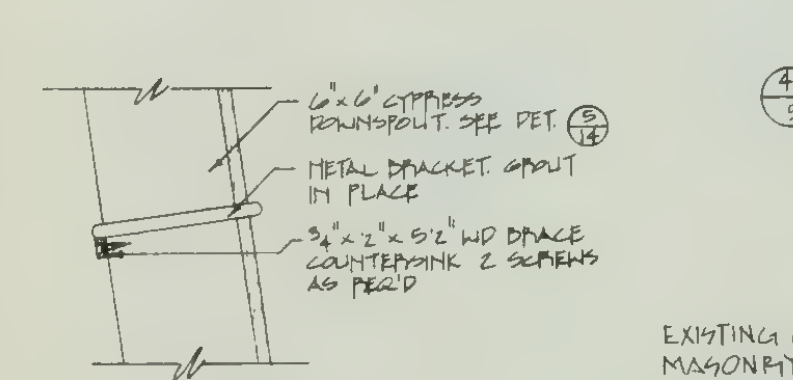 6"x6" CYPRESS
DOWNSPOUT. SEE DET. 5/14
METAL BRACKET. GROUT
IN PLACE
3/4" x 2" x 5'2" WD BRACE
COUNTERSINK 2 SCREWS
AS REQ'D
4
EXISTING
MASONRY